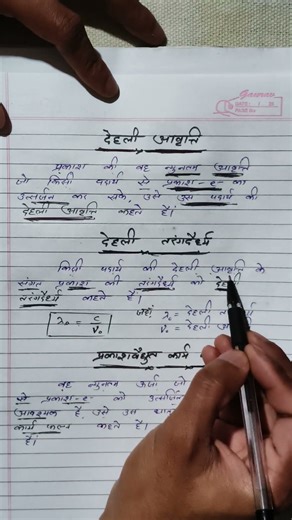 Gaurav
DATE
PAGE No.
देहली आवृत्ति
प्रकाश की वह न्यूनतम आवृत्ति
जो किसी पदार्थ से प्रकाश-e- का
उत्सर्जन कर सके उसे उस पदार्थ की
देहली आवृत्ति कहते हैं।
देहली तरंगदैर्ध्य
किसी पदार्थ की देहली आवृत्ति के
संगत प्रकाश की तरंगदैर्ध्य को देहली
तरंगदैर्ध्य कहते हैं।
λ₀ = c/ν₀ जहाँ λ₀ = देहली
ν₀ = देहली
प्रकाशवैद्युत कार्य
वह न्यूनतम ऊर्जा जो
से प्रकाश-e- को
आवश्यक है, उसे उस
कार्य फलन कहते हैं।